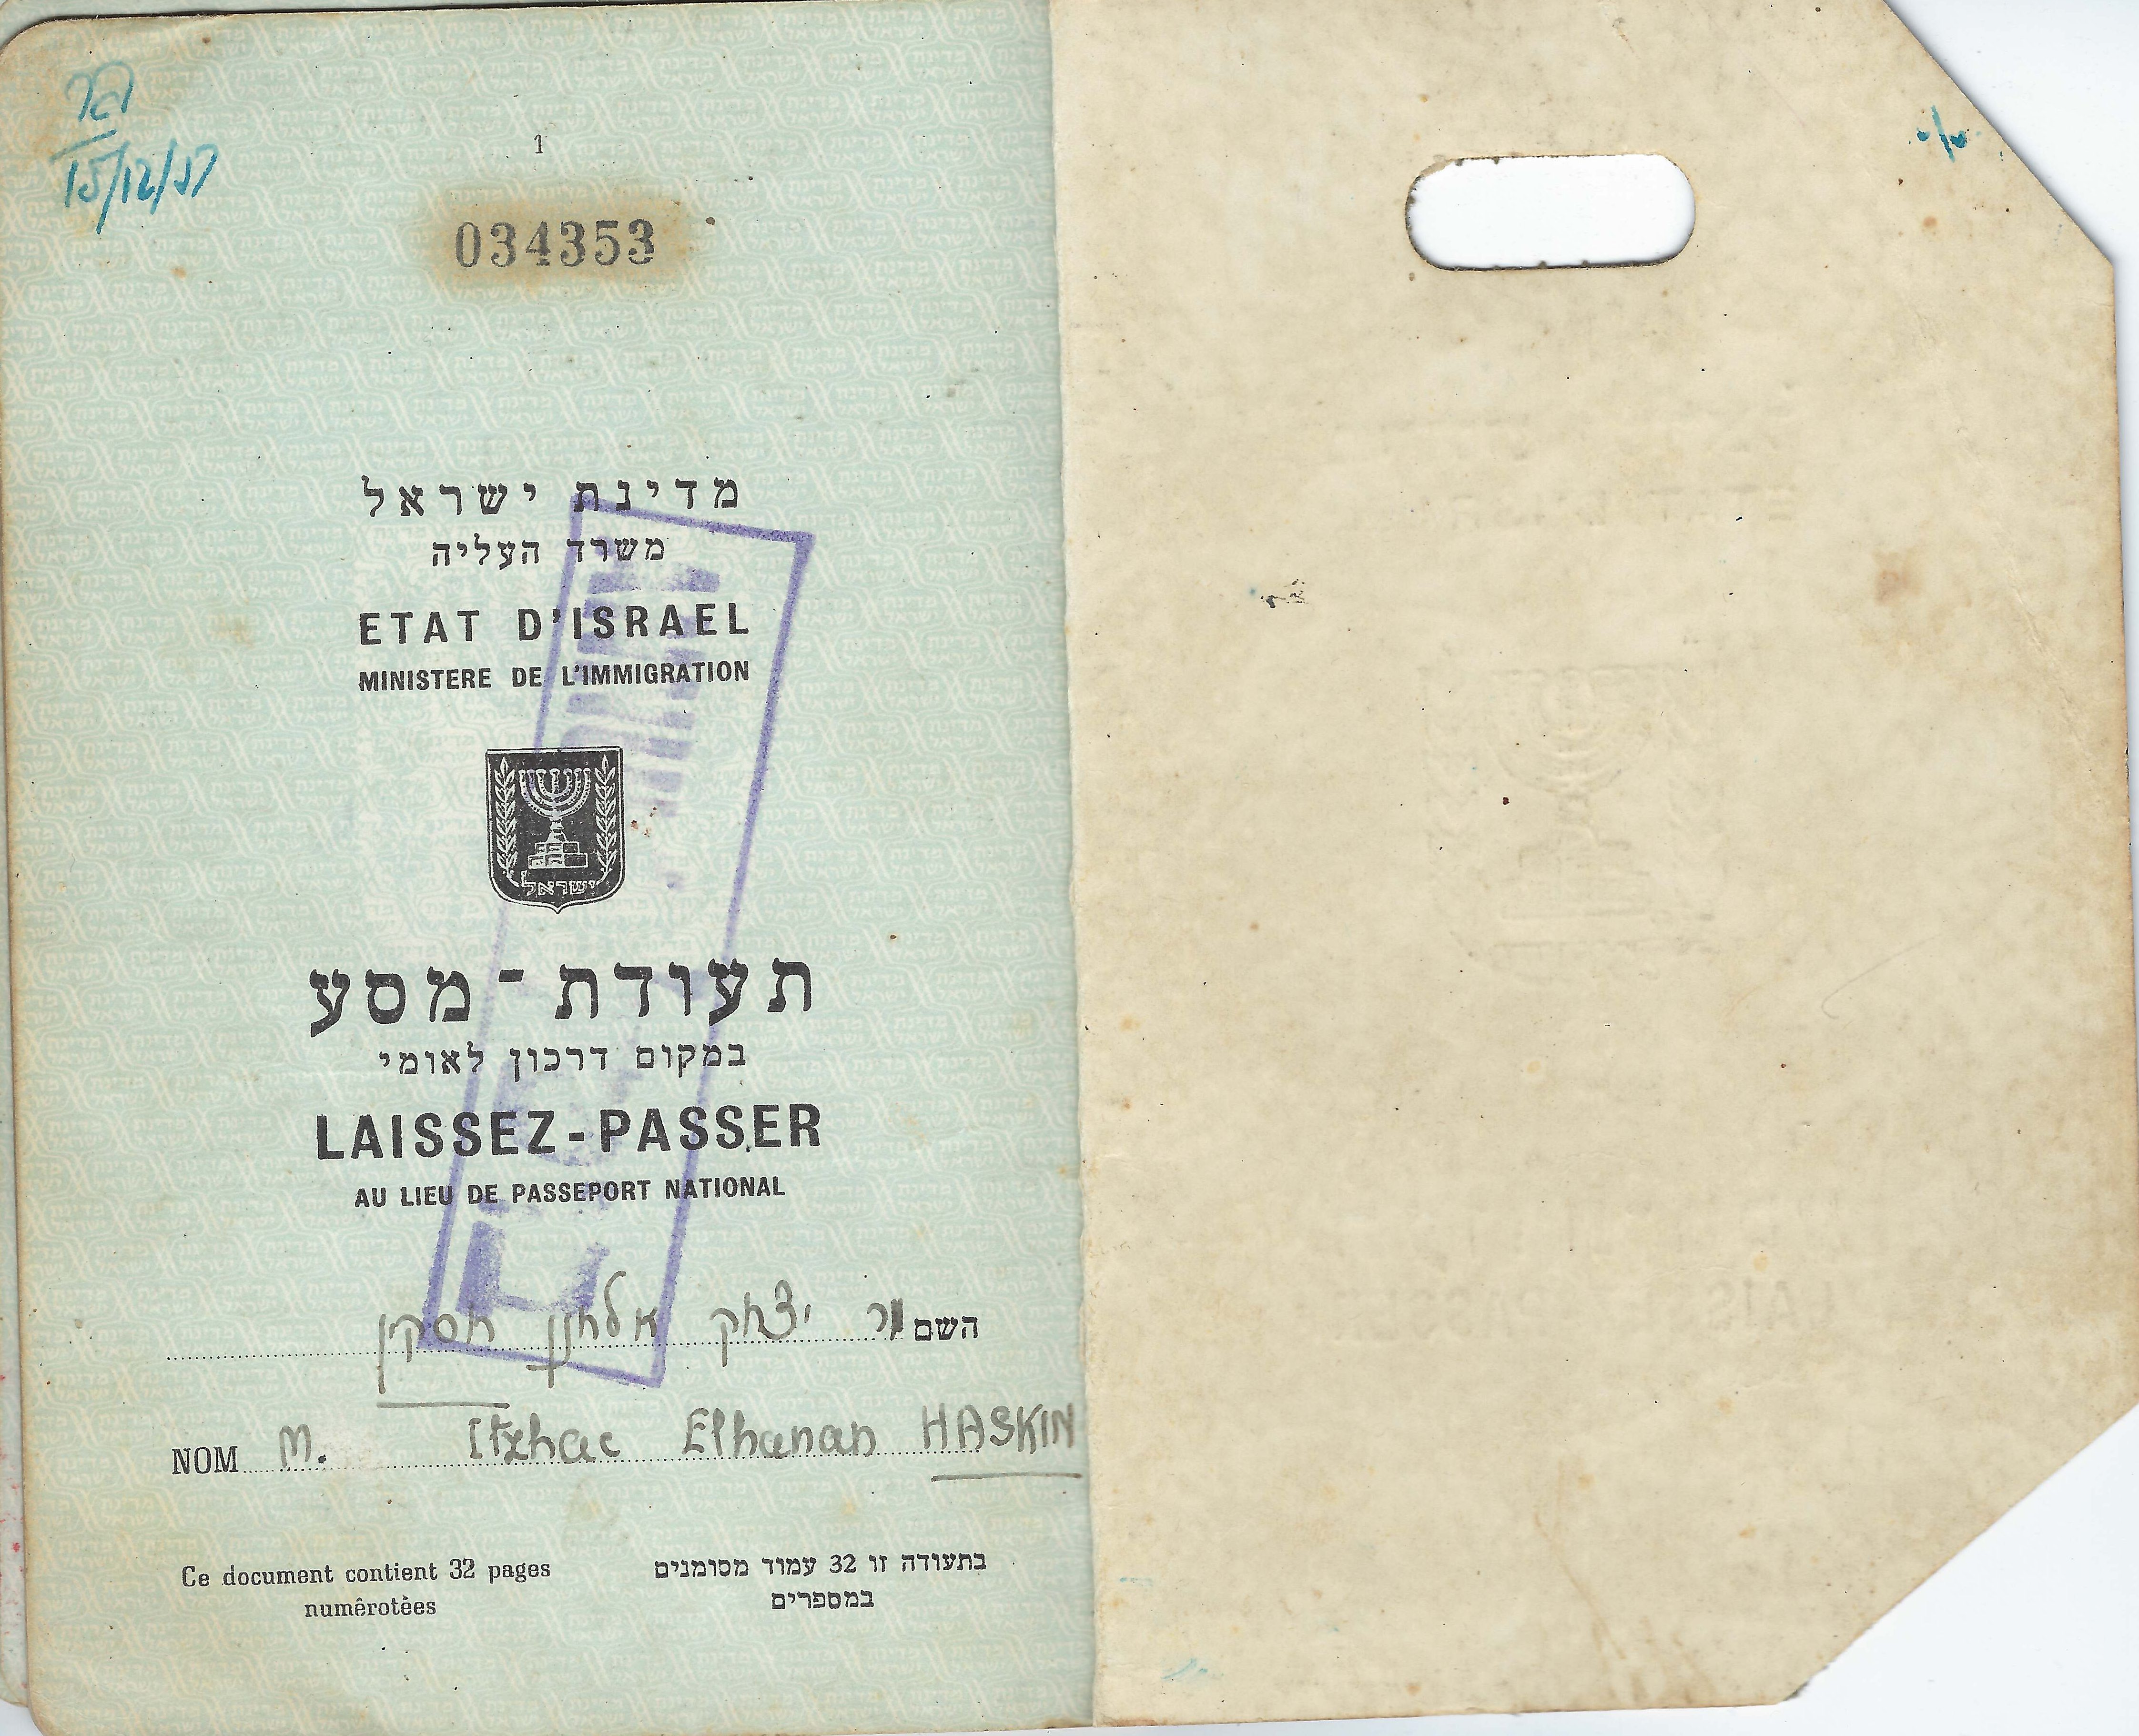 15/12/51
1
034353
מדינת ישראל
משרד העליה
ETAT D'ISRAEL
MINISTERE DE L'IMMIGRATION
ישראל
תעודת-מסע
במקום דרכון לאומי
LAISSEZ-PASSER
AU LIEU DE PASSEPORT NATIONAL
השם מר יצחק אלחנן חסקין
NOM M. Itzhac Elhanan HASKIN
Ce document contient 32 pages
numêrotées
בתעודה זו 32 עמוד מסומנים
במספרים